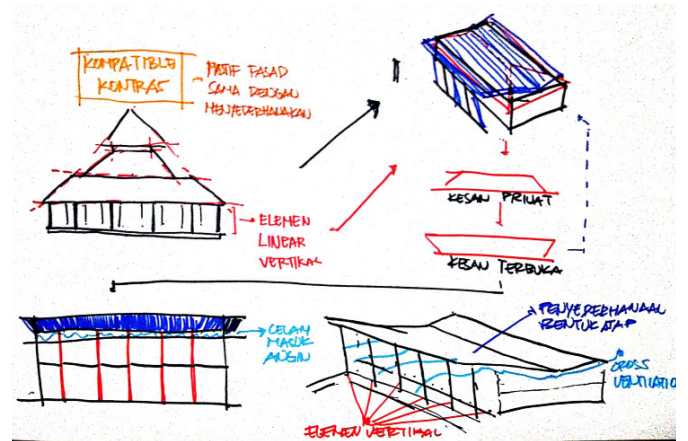 KOMPATIBLE
KONTRAS
MOTIF FASAD
SAMA DENGAN
MENYEDERHANAKAN
ELEMEN
LINEAR
VERTIKAL
KESAN PRIVAT
KESAN TERBUKA
CELAH
MASUK
ANGIN
PENYEDERHANAAN
BENTUK ATAP
CROSS
VENTILATIO
ELEMEN VERTIKAL